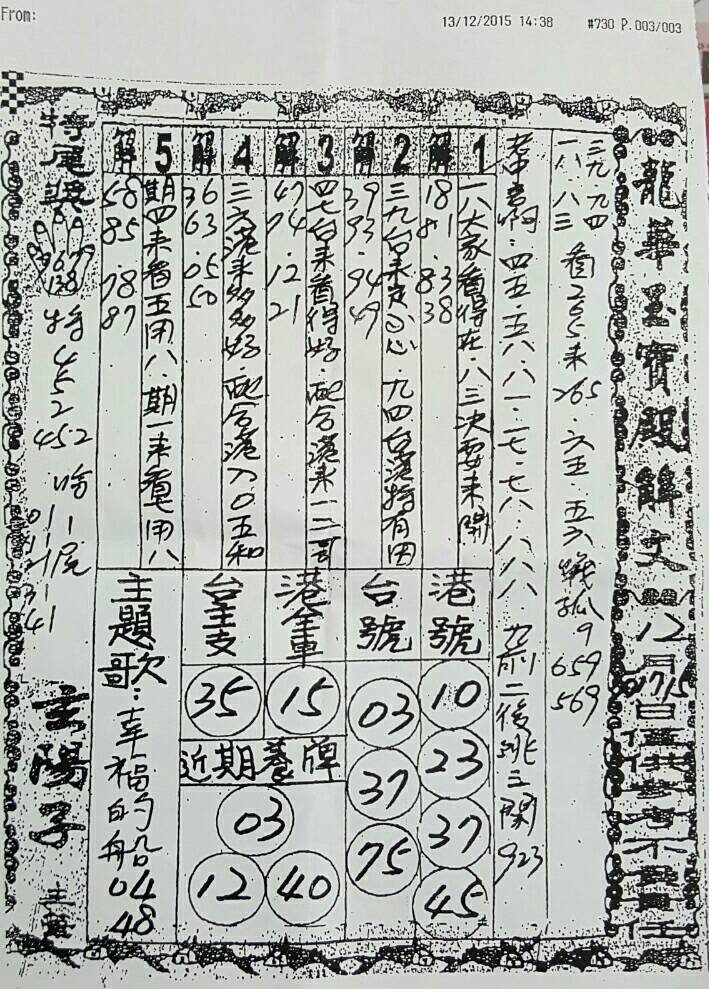 From:
13/12/2015 14:38
#730 P.003/003
龍華玉寶殿解文
僅供參考不負責任
三九.九四
一八.八三
看265來265.六五.五六
9
659
569
四五.五八.八一.一七.七八.八八八.九前二後跳三開923
1
一八大家看得在.八三決要來開
解
18
81
83
38
2
三九台來定心心.九四台港特有因
解
39
93
94
49
3
四七台來看得好.配合港來一二哥
解
47
74
12
21
4
三六港來多多好.配合港入0五和
解
36
63
05
50
5
期四來看五用八.期一來看七用八
解
58
85
78
87
港號
10
23
37
45
台號
03
37
75
港全車
15
台主支
35
近期養牌
03
12
40
主題歌:幸福的船
04
48
特尾獎
特
4
5
2
452
1尾
01
11
21
31
41
玄陽子